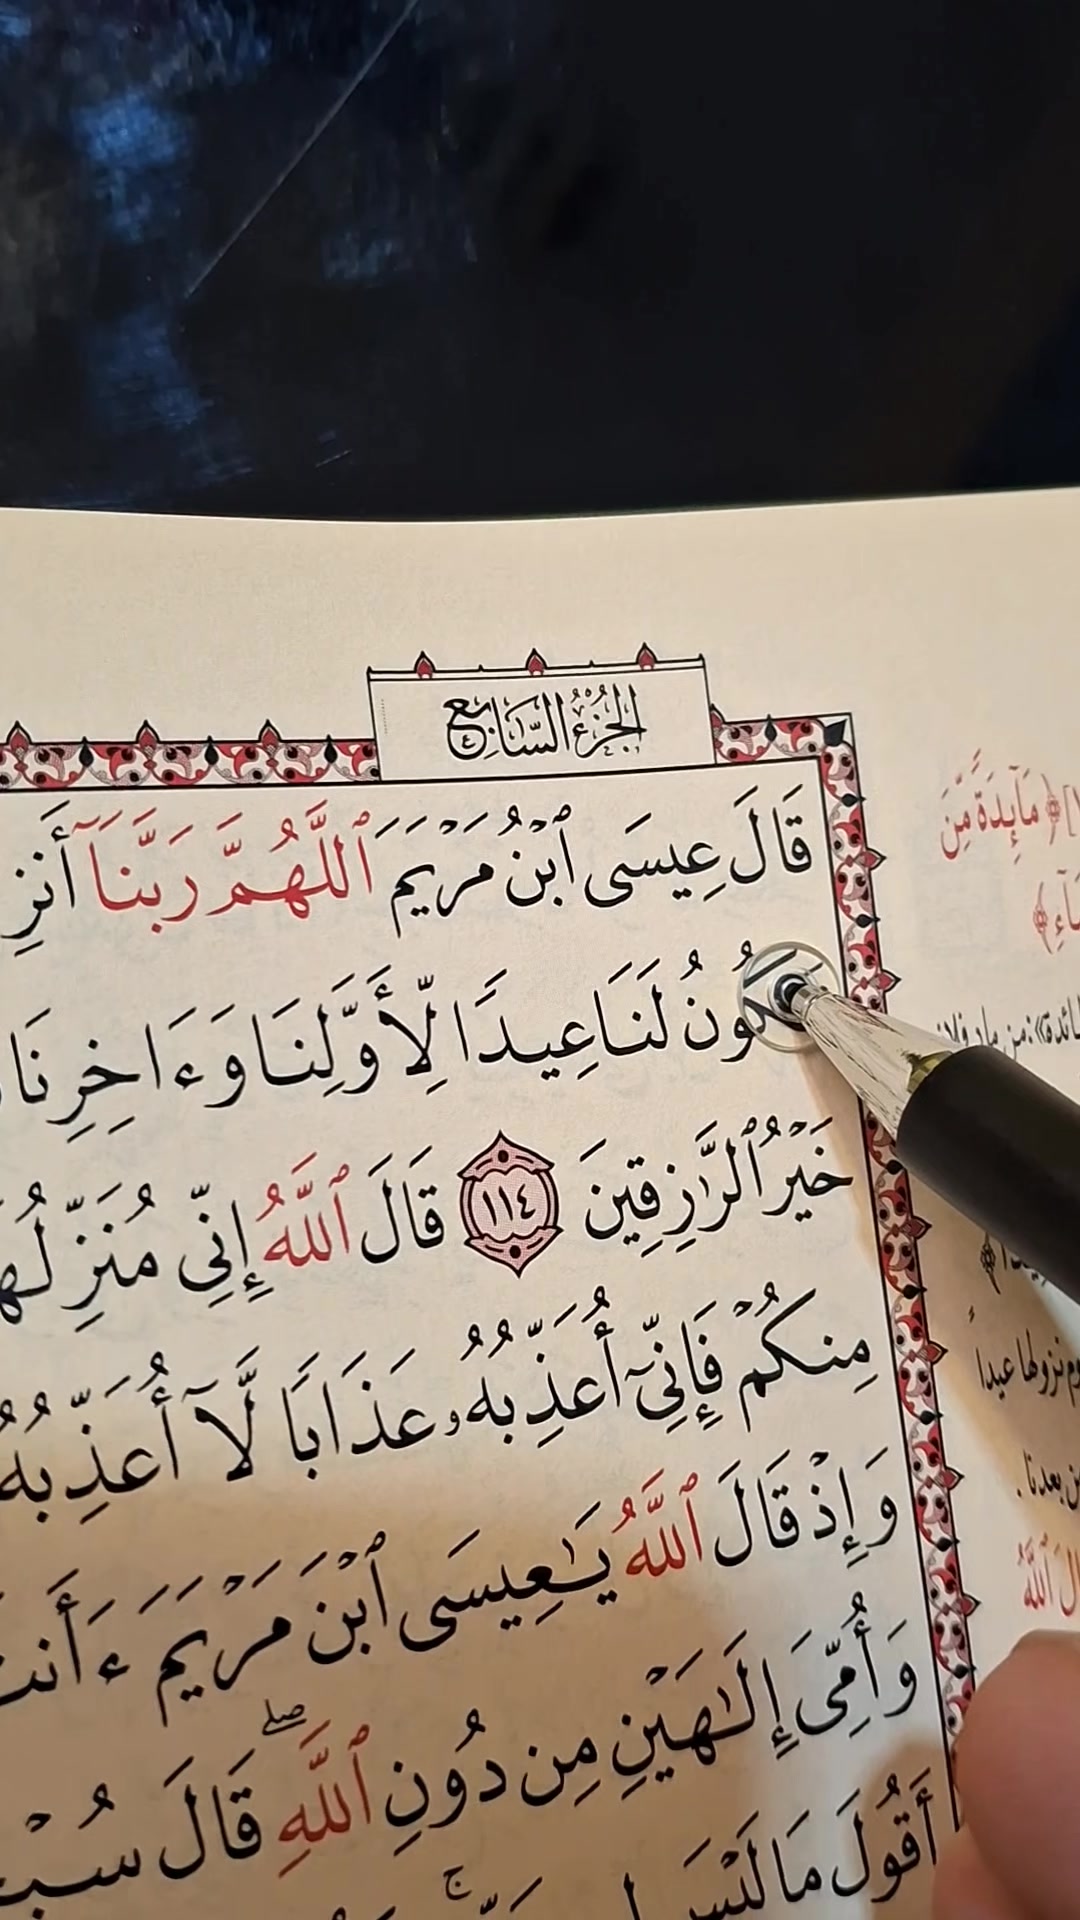 الجُزْءُ السَّابِعُ
قَالَ عِيسَى ٱبْنُ مَرْيَمَ ٱللَّهُمَّ رَبَّنَآ أَنزِ
كُونُ لَنَا عِيدًا لِّأَوَّلِنَا وَءَاخِرِنَا
خَيْرُ ٱلرَّٰزِقِينَ ١١٤ قَالَ ٱللَّهُ إِنِّي مُنَزِّلُهَ
مِنكُمْ فَإِنِّيٓ أُعَذِّبُهُۥ عَذَابًا لَّآ أُعَذِّبُهُۥ
وَإِذْ قَالَ ٱللَّهُ يَٰعِيسَى ٱبْنَ مَرْيَمَ ءَأَنتَ
وَأُمِّيَ إِلَٰهَيْنِ مِن دُونِ ٱللَّهِۖ قَالَ سُبْ
أَقُولَ مَا لَيْسَ لِي
مَآئِدَةً مِّنَ
نزولها عيداً
من بعدنا .
ٱللَّهُ